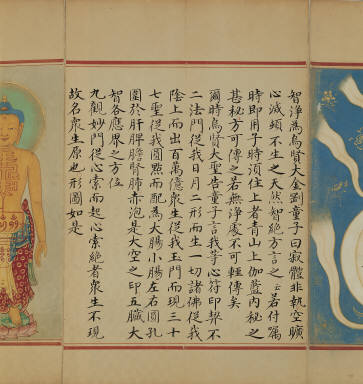 智淨為烏賢大金剛童子曰寂體非執空曠
心滅頻不生之天然智絕方言之上若付囑
時即用子時須住上者青山上伽藍內秘之
甚秘方可傳之若無淨處不可輕傳矣
爾時烏賢大聖告童子言我等心符印契不
二法門從我日月二形而生一切諸佛從我
陰上而出百萬億眾生從我玉門而現三十
七聖從我圓點而配為大腸小腸左右圓孔
圍於肝脾膽腎肺赤泡是大空之印五臟大
智各應界之方位
九觀妙門從心索而起心索絕者眾生不現
故名眾生原也形圖如是